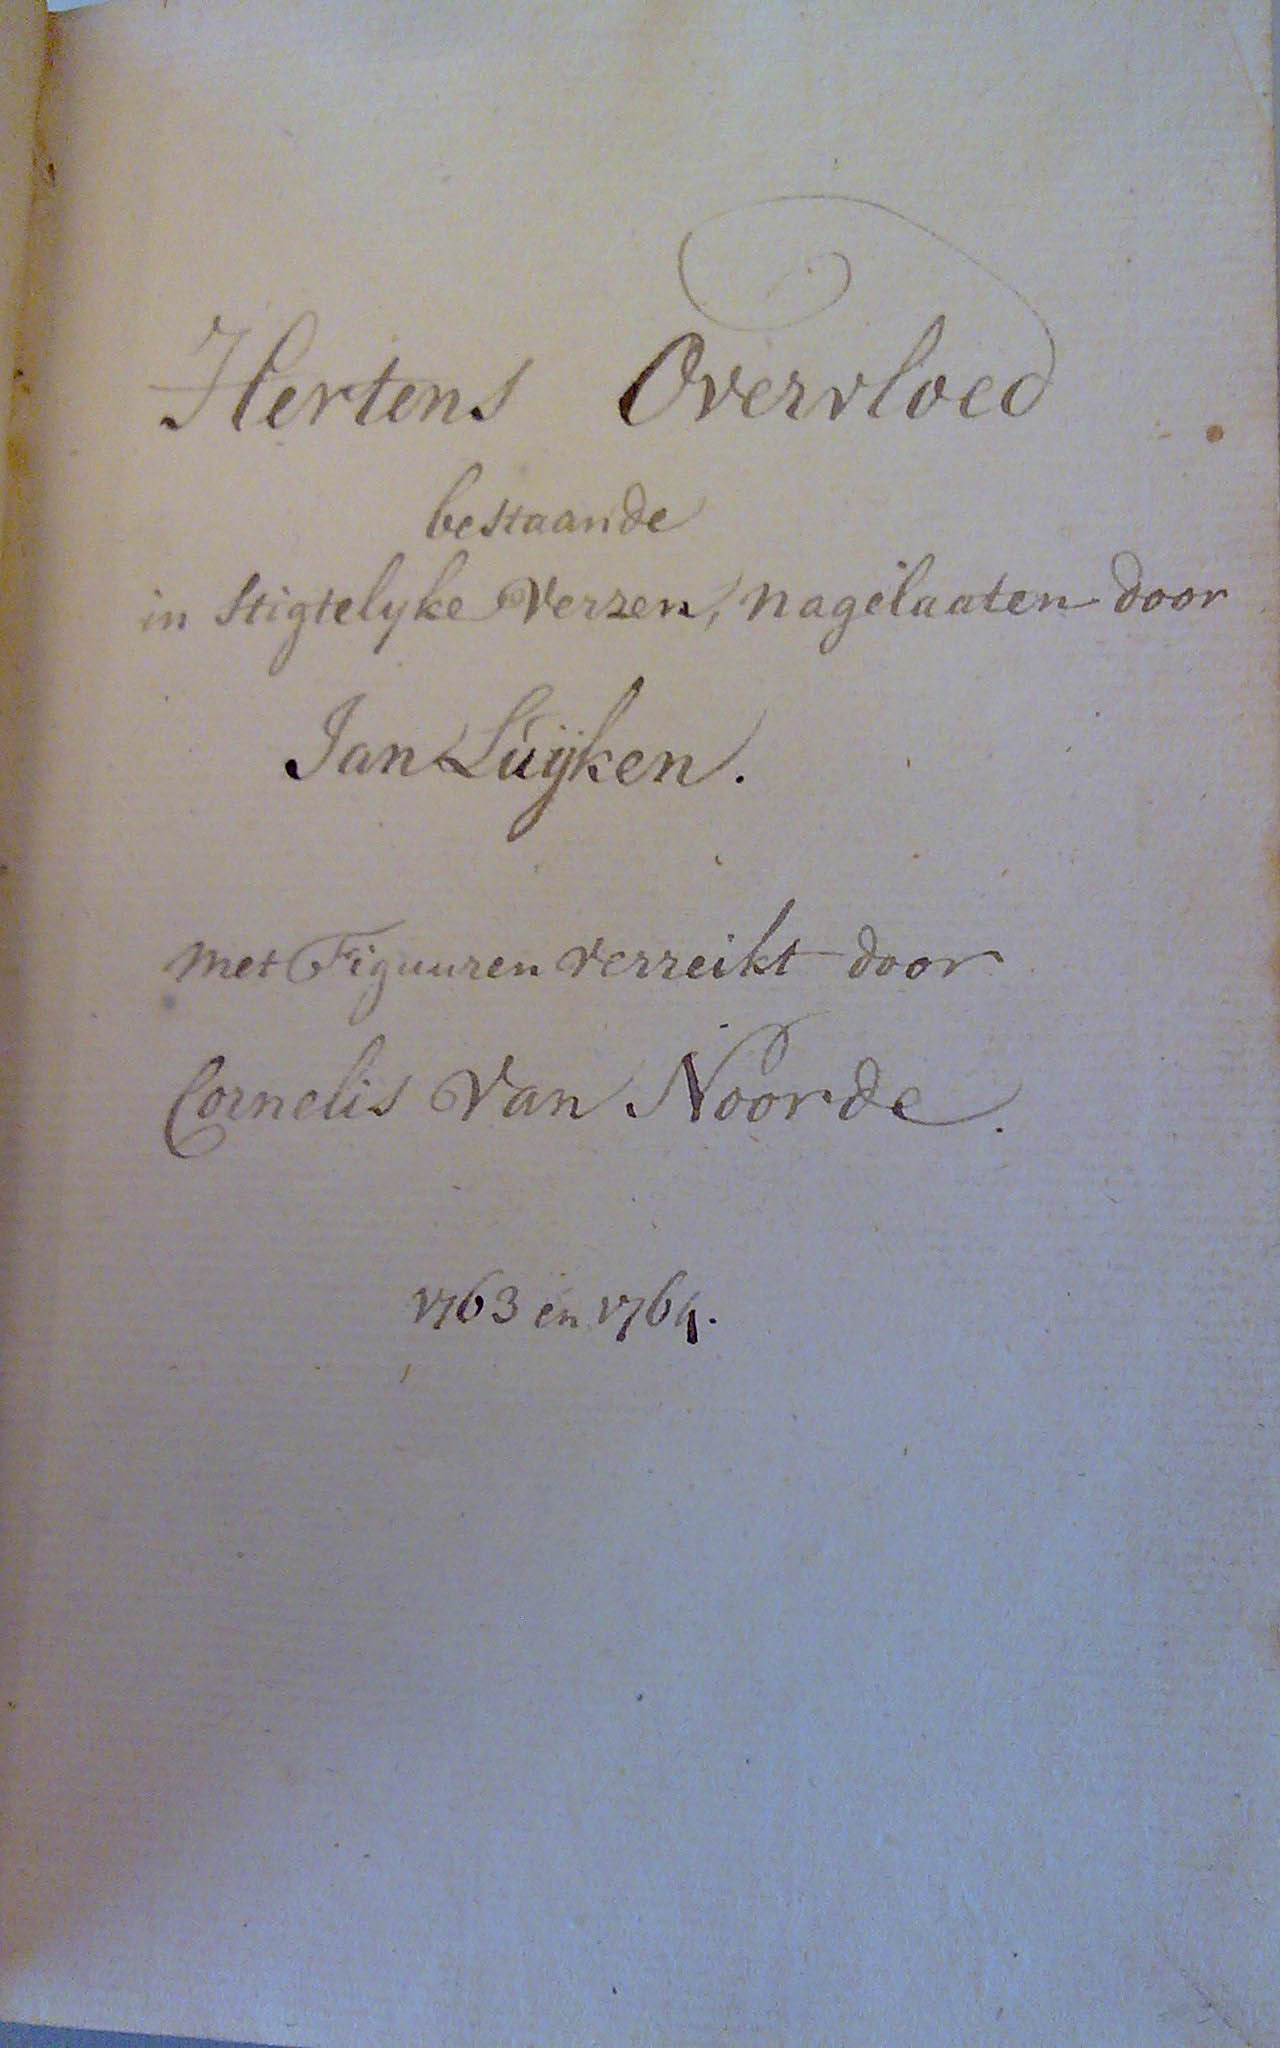 Hertens Overvloed
bestaande
in stigtelyke Verzen, nagelaaten door
Jan Luijken.
met Figuuren verreikt door
Cornelis Van Noorde.
1763 en 1764.